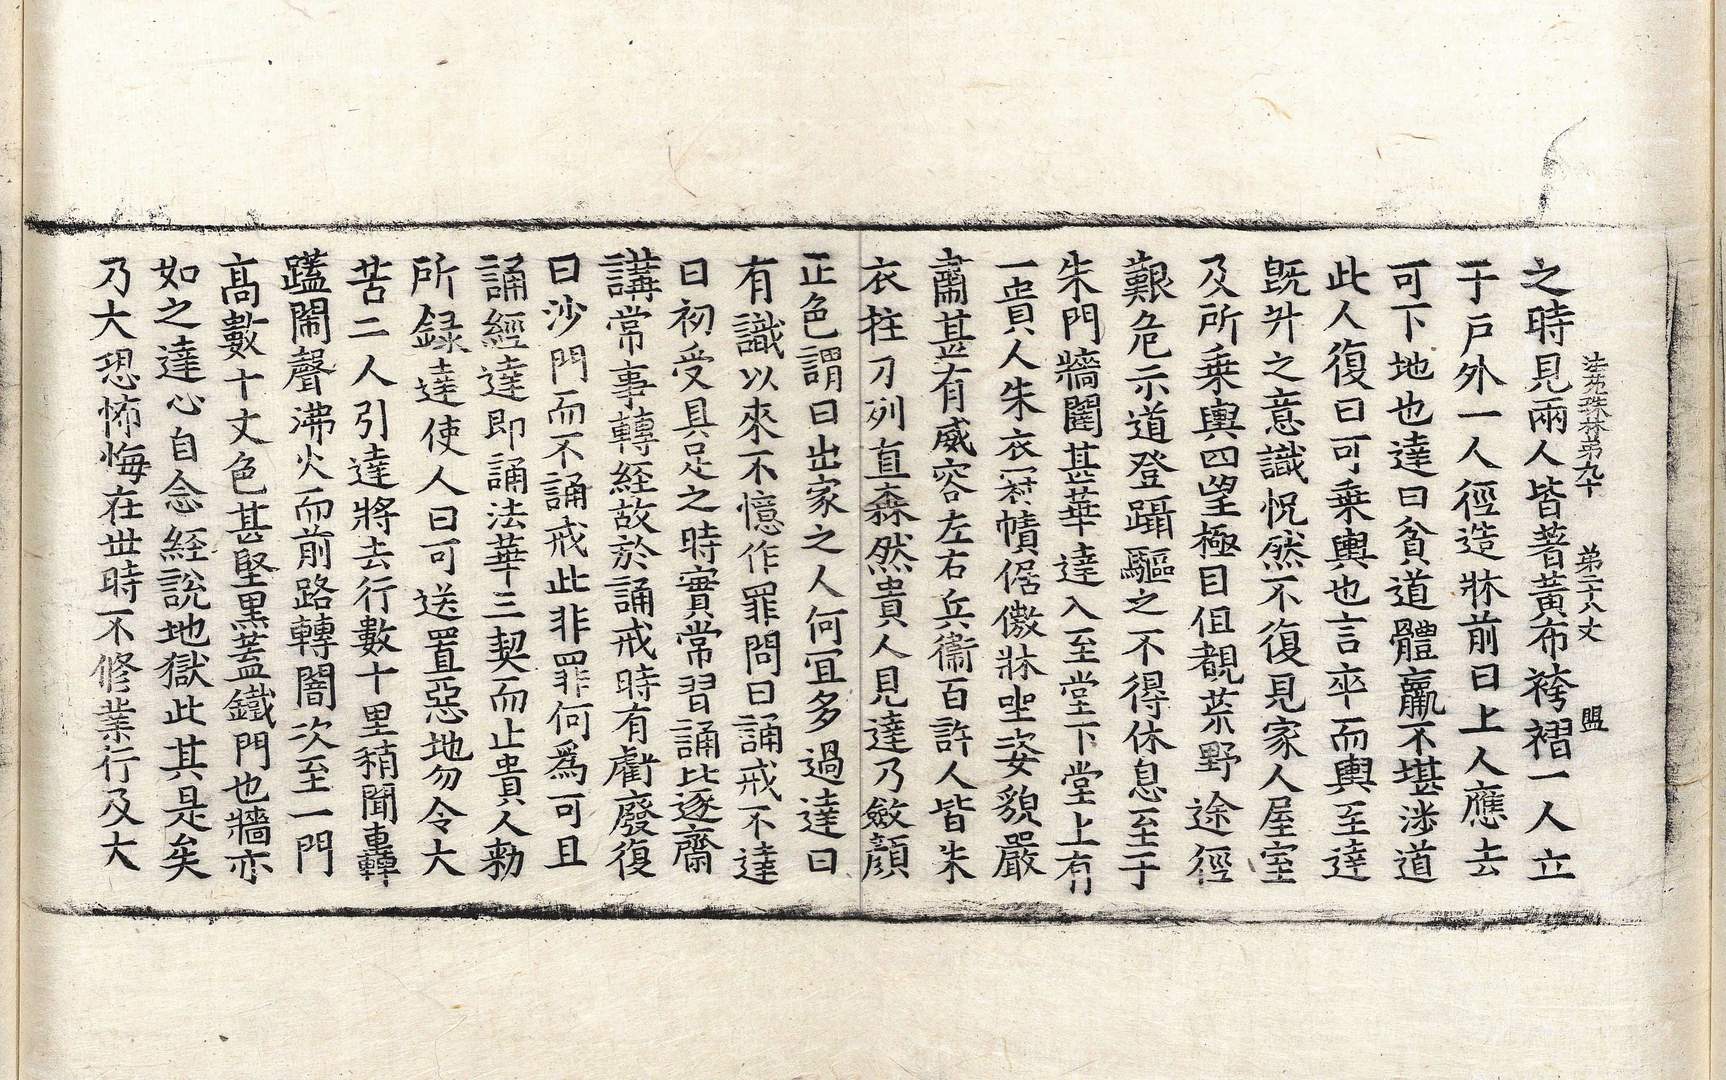 法苑珠林第九十　第二十八丈　盟
之時見兩人皆著黃布袴褶一人立
于戶外一人徑造牀前曰上人應去
可下地也達曰貧道體羸不堪涉道
此人復曰可乗輿也言卒而輿至達
旣升之意識怳然不復見家人屋室
及所乗輿四望極目但覩荒野途徑
艱危示道登躡驅之不得休息至于
朱門牆闥甚華達入至堂下堂上有
一貴人朱衣冠幘倨傲牀坐姿貌嚴
肅甚有威容左右兵衞百許人皆朱
衣拄刀列直森然貴人見達乃斂顔
正色謂曰出家之人何宜多過達曰
有識以來不憶作罪問曰誦戒不達
曰初受具足之時實常習誦比逐齋
講常事轉経故於誦戒時有虧廢復
曰沙門而不誦戒此非罪何爲可且
誦經達即誦法華三契而止貴人勑
所録達使人曰可送置惡地勿令大
苦二人引達將去行數十里稍聞轟
𨋽鬧聲沸火而前路轉闇次至一門
髙數十丈色甚堅黑蓋鐵門也牆亦
如之達心自念経說地獄此其是矣
乃大恐怖悔在世時不修業行及大